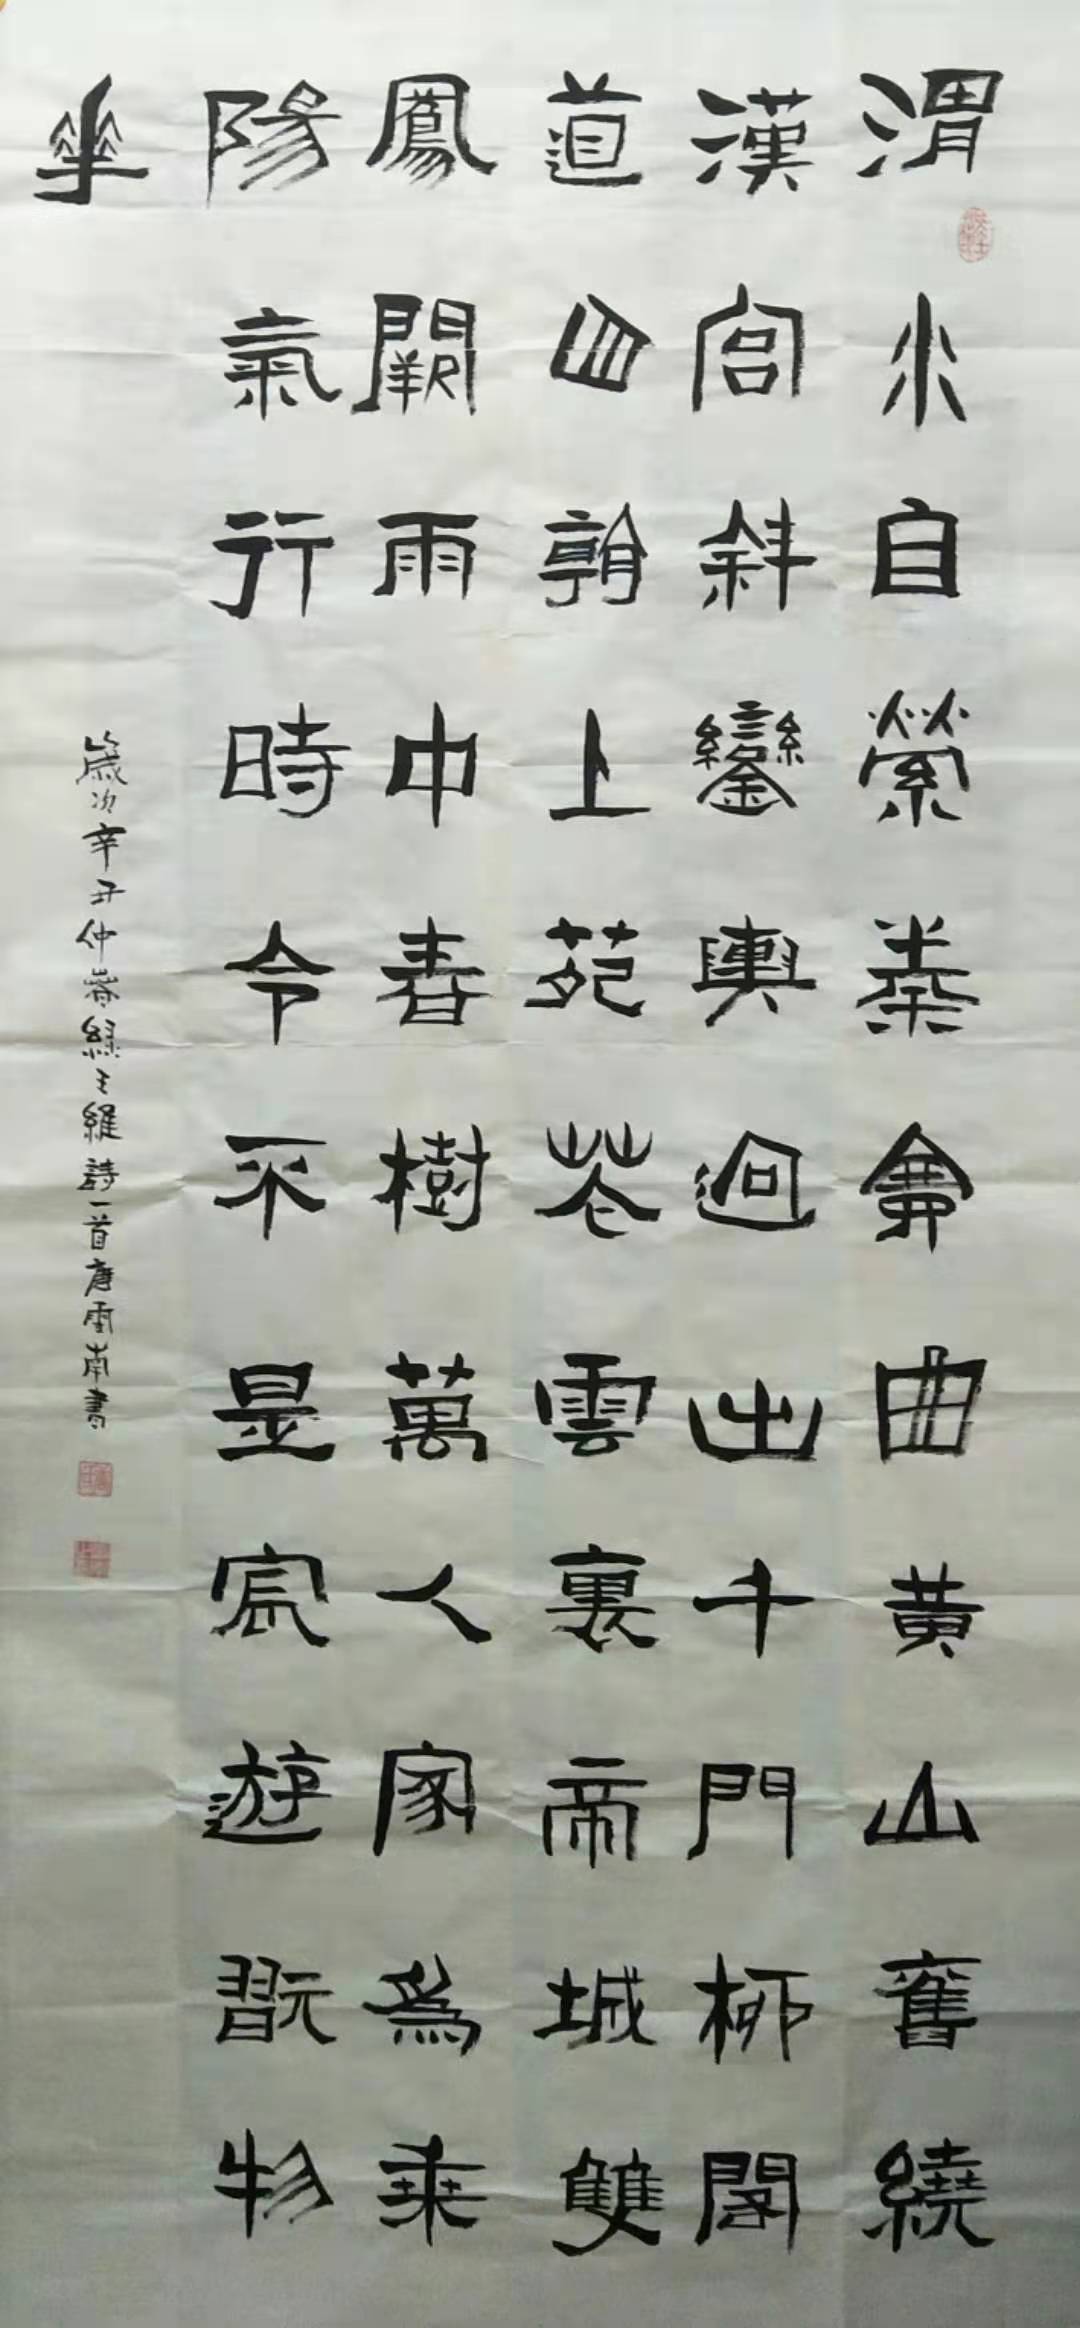 渭水自縈秦塞曲黃山舊繞
漢宮斜鑾輿迥出千門柳閣
道回看上苑花雲裏帝城雙
鳳闕雨中春樹萬人家為乘
陽氣行時令不是宸遊翫物
華
歲次辛丑仲春錄王維詩一首唐雲南書